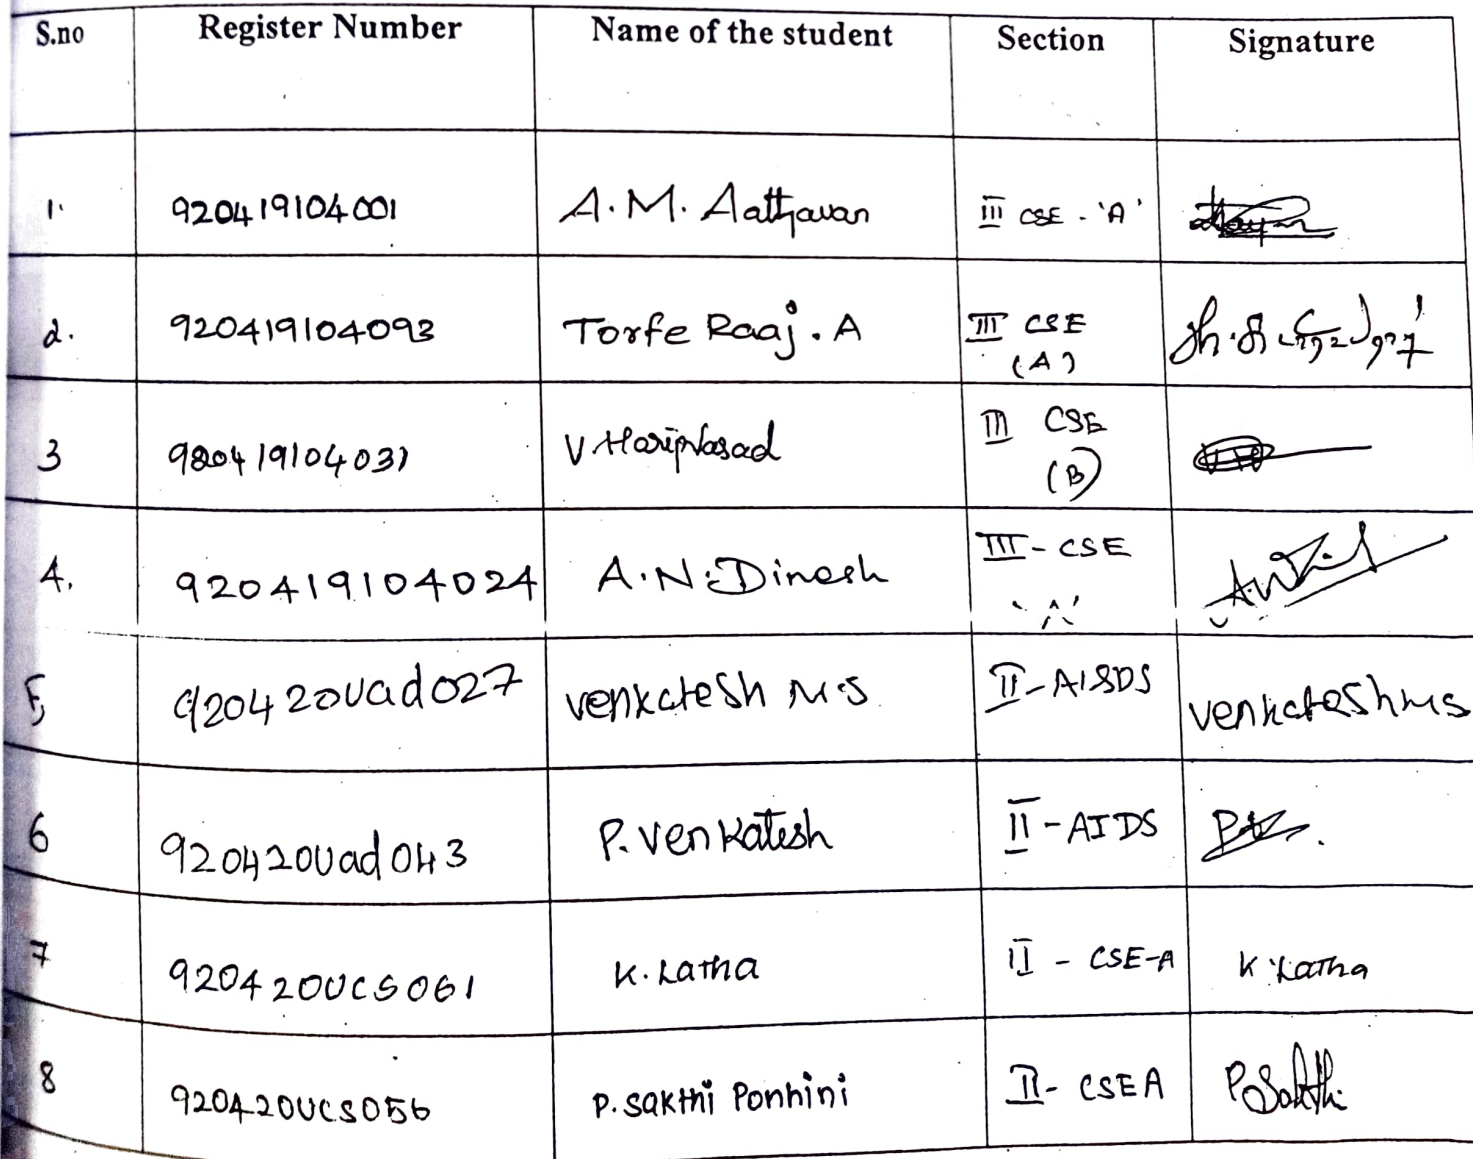 S.no Register Number Name of the student Section Signature
1. 920419104001 A.M. Aathavan III CSE - 'A'
2. 920419104093 Torfe Raaj. A III CSE
(A)
3 920419104031 V. Hariprasad III CSE
(B)
4. 920419104024 A.N. Dinesh III - CSE
'A'
5, 920420uad027 venkatesh M.S. II - AI&DS venkatesh ms
6 920420uad043 P. Venkatesh II - AIDS
7 920420UCS061 K. Latha II - CSE-A K. Latha
8 920420UCS056 P. Sakthi Ponnini II - CSE A P. Sakthi